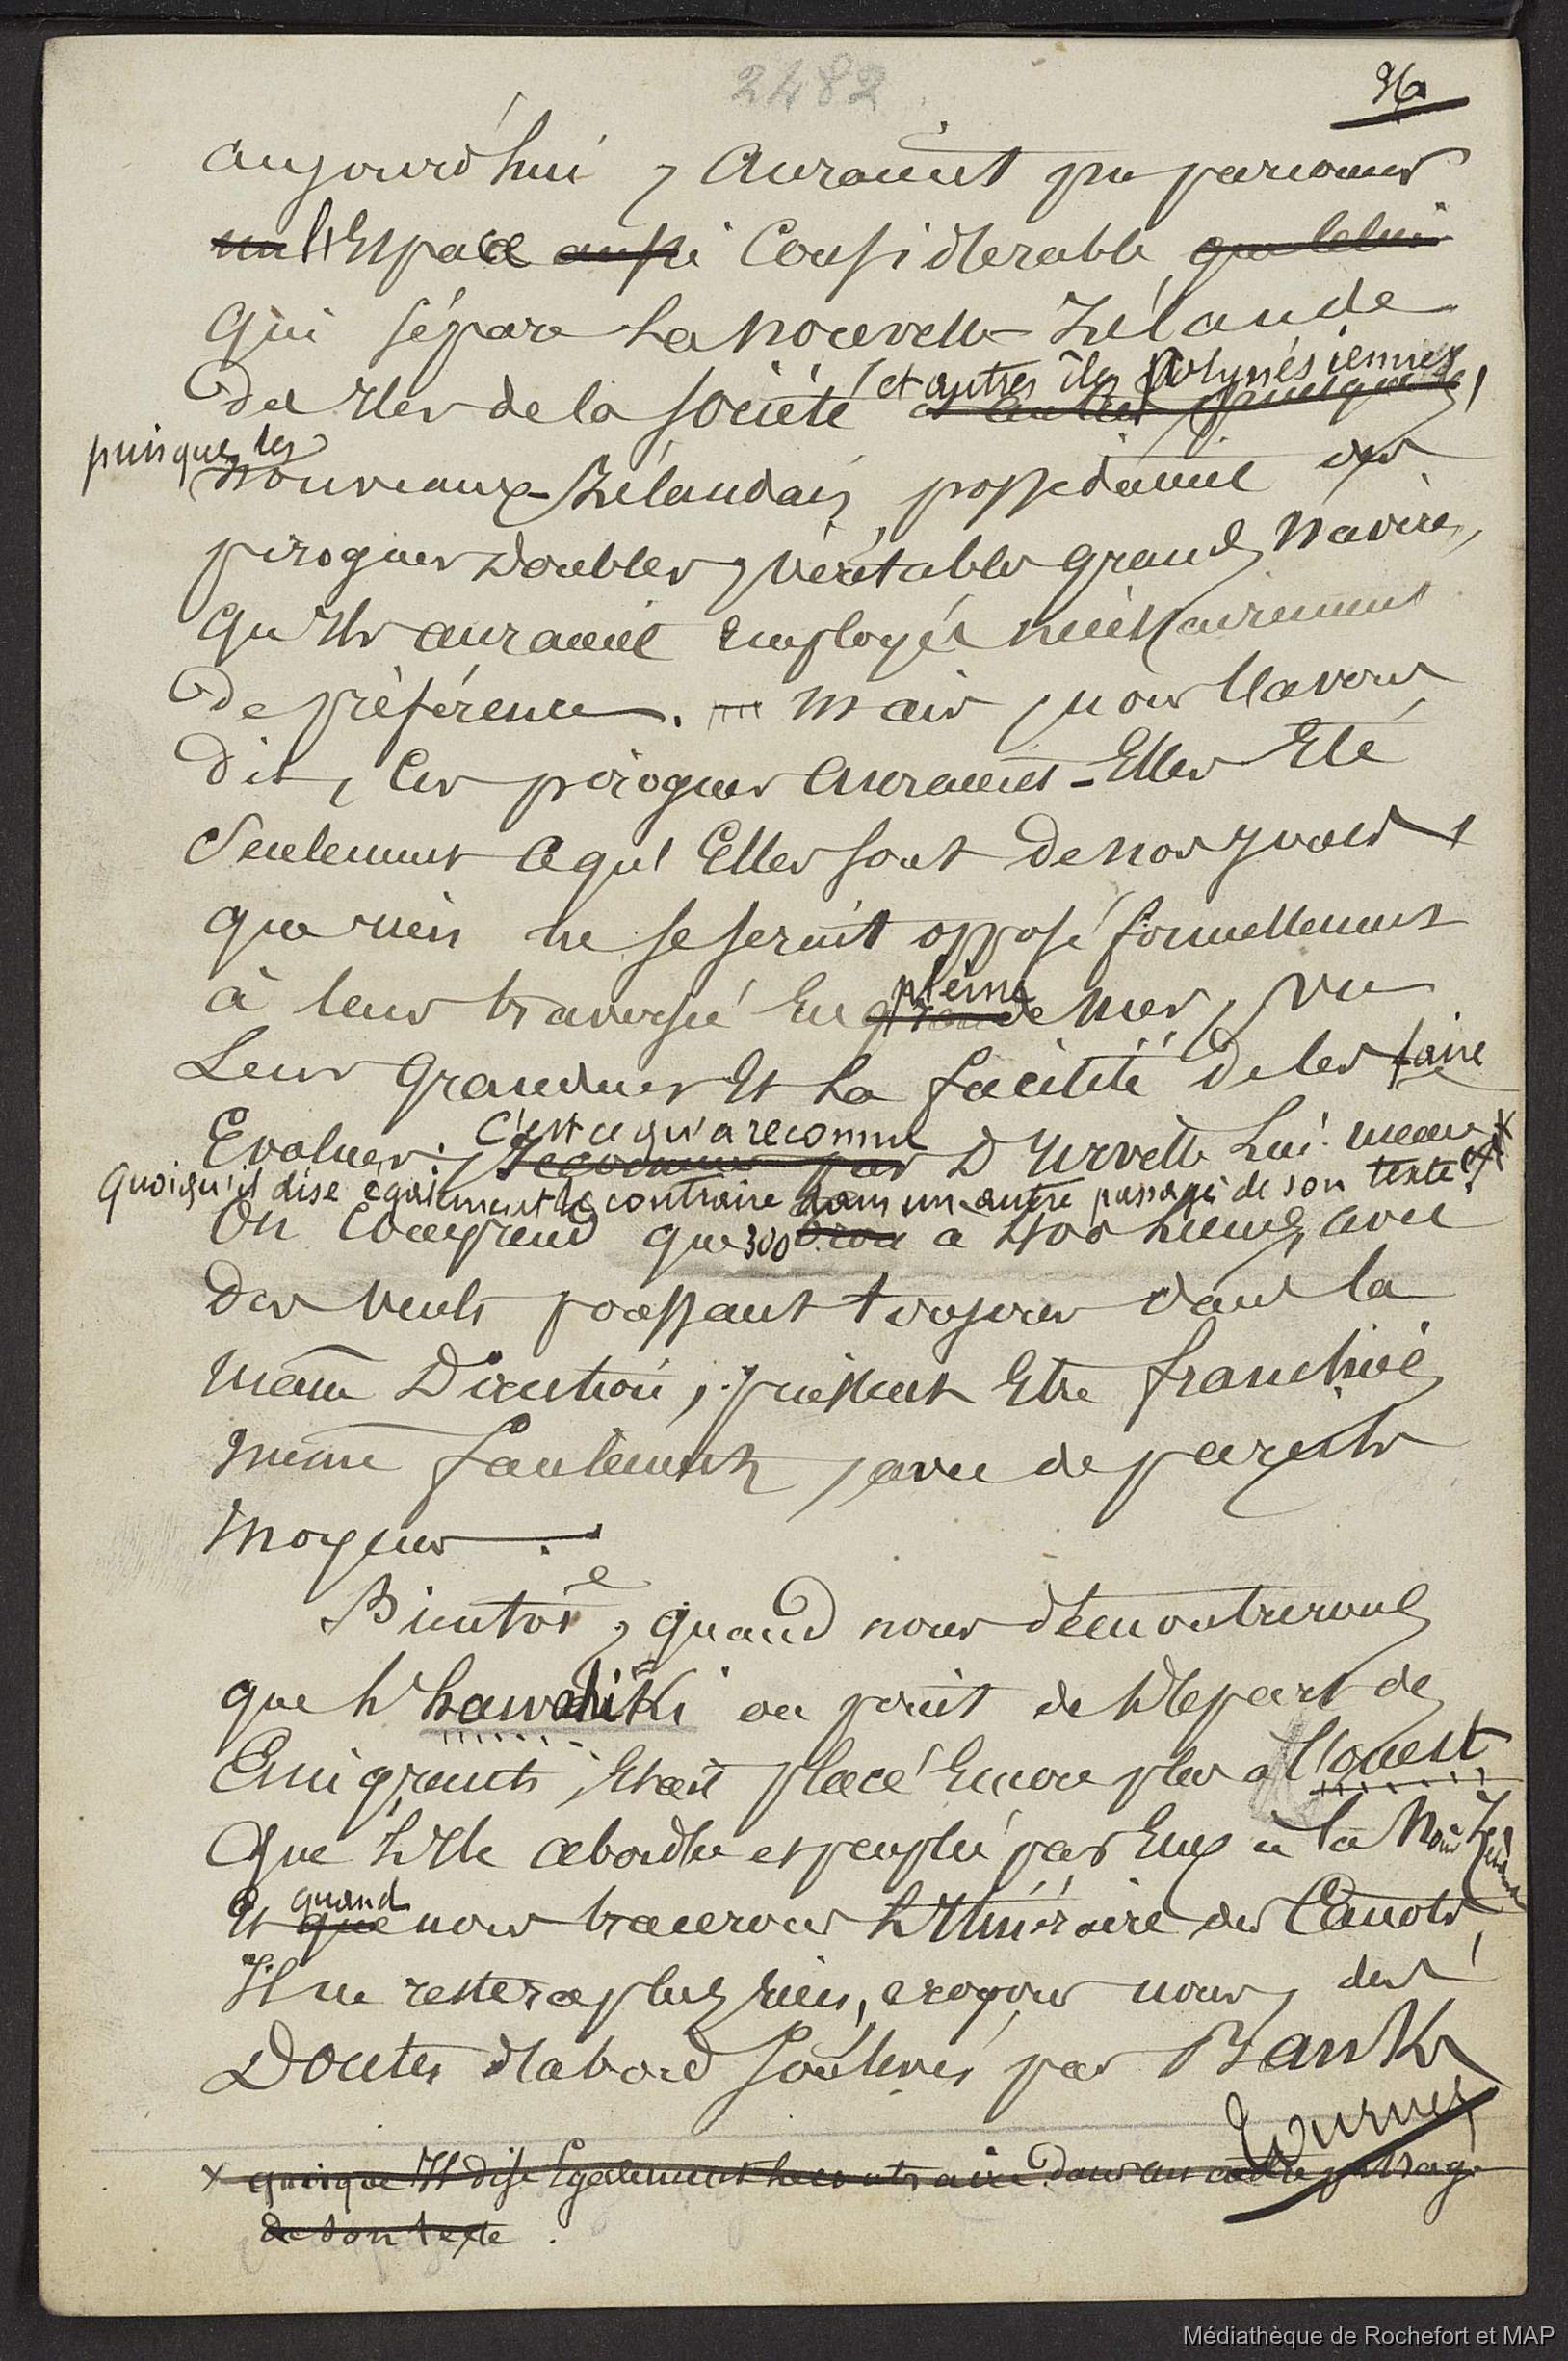 2482
aujourd'hui, auraient pu parcourir
un l'Espace aussi Considérable que celui
qui sépare la Nouvelle-Zélande
des Iles de la Société et autres îles Polynésiennes puisque les,
puisque les
Nouveaux-Zélandais possédaient des
pirogues doubles, véritables grands navires,
qu'Ils auraient employés nécessairement
de préférence. — Mais, nous l'avons
dit, Ces pirogues auraient-Elles Eté
Seulement ce qu'Elles sont de nos jours
que rien ne se serait opposé formellement
à leur traversée En grande pleine mer, vu
Leur grandeur Et la facilité de les faire
Evoluer; c'est ce qu'a reconnu par D'Urville Lui-même x
quoiqu'il dise également le contraire dans un autre passage de son texte
On comprend que 300 à 400 lieues, avec
des vents poussant toujours dans la
même Direction, puissent Etre franchies
même facilement, avec de pareils
moyens.
Bientôt, quand nous démontrerons
que l'Hawahiki ou point de départ des
Emigrants, Etait placé Encore plus à l'ouest
Que l'Ile abordée et peuplée par Eux à la Nouv. Zélande
Et que quand nous tracerons l'Itinéraire des Canots,
Il ne restera plus rien, croyons nous, des
Doutes d'abord soulevés par Banks
x quoique Il dise Egalement le contraire dans un autre passage
de son texte.
Médiathèque de Rochefort et MAP